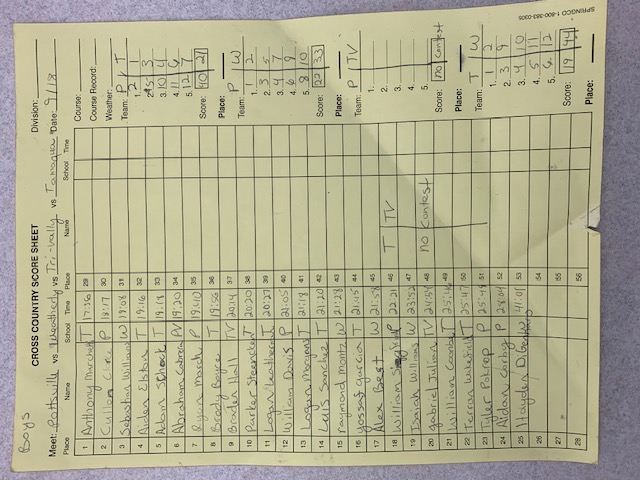 Boys
CROSS COUNTRY SCORE SHEET
Division:
Meet: Pottsville vs Weatherly vs Tri-Vally vs Tamaqua Date: 9/18
Course:
Course Record:
Weather:
Place Name School Time Place Name School Time
1 Anthony T 17:36
2 P 18:17
3 Sebastian Williams W 19:08
4 Aiden T 19:16
5 Adam Schock T 19:18
6 Abraham Cabrera TV 19:20
7 Ryan March P 19:40
8 Brady Boyce T 19:56
9 Braden Hall TV 20:14
10 Parker T 20:20
11 Logan T 20:27
12 William Davis P 21:05
13 Logan T 21:18
14 Luis Sanchez T 21:20
15 raymond Montz W 21:28
16 Yossaf garcia T 21:45
17 Alex Best W 21:58
18 William P 22:21
19 Isaiah Williams W 23:52
20 gabriel Julian TV 24:54
21 William T
22 Terran T 25:47
23 Tyler P
24 Aidan Corby P
25 Hayden W
26
27
28
29
30
31
32
33
34
35
36
37
38
39
40
41
42
43
44
45
46 T TV
47
48 No Contest
49
50
51
52
53
54
55
56
Team: P T
1. 2 1
2. 5 3
3. 10 4
4. 11 6
5. 12 7
Score: 40 21
Place:
Team: P W
1. 1 2
2. 3 5
3. 4 7
4. 6 9
5. 8 10
Score: 22 33
Place:
Team: P TV
1.
2.
3.
4.
5.
Score: No Contest
Place:
Team: T W
1. 1 2
2. 3 9
3. 4 10
4. 5 11
5. 6 12
Score: 19 44
Place:
SPRINGCO 1-800-383-0305